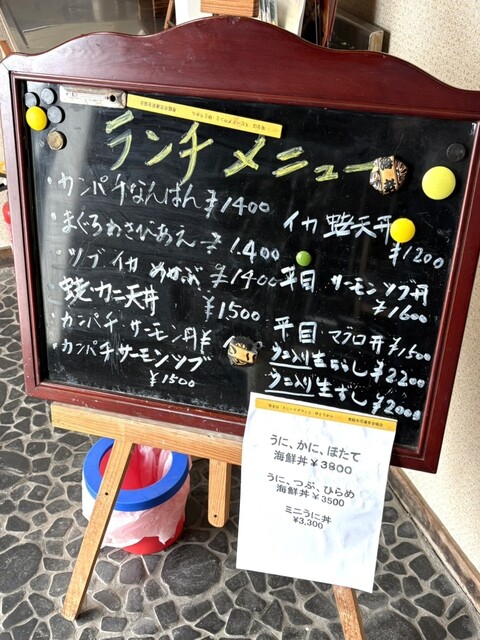 ランチメニュー
・カンパチなんばん ¥1400
・まぐろわさびあえ ¥1400
・ツブ イカ めかぶ ¥1400
・カニ天丼 ¥1500
・カンパチ・サーモン丼 ¥
・カンパチ サーモン ツブ
¥1500
イカ 天丼
¥1200
平目 サーモン ツブ丼
¥1600
平目・マグロ丼 ¥1500
ウニ入り生ちらし ¥2200
ウニ入り生すし ¥2000
うに、かに、ほたて
海鮮丼 ¥3800
うに、つぶ、ひらめ
海鮮丼 ¥3500
ミニうに丼
¥3,300